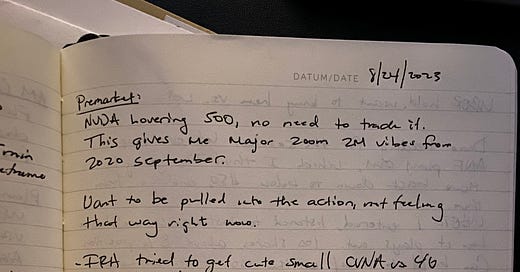 DATUM/DATE 8/24/2023
Premarket:
NVDA hovering 500, no need to trade it.
This gives me Major zoom ZM vibes from
2020 september.
Want to be pulled into the action, not feeling
that way right now.
- IRA tried to get cute small CVNA vs 46